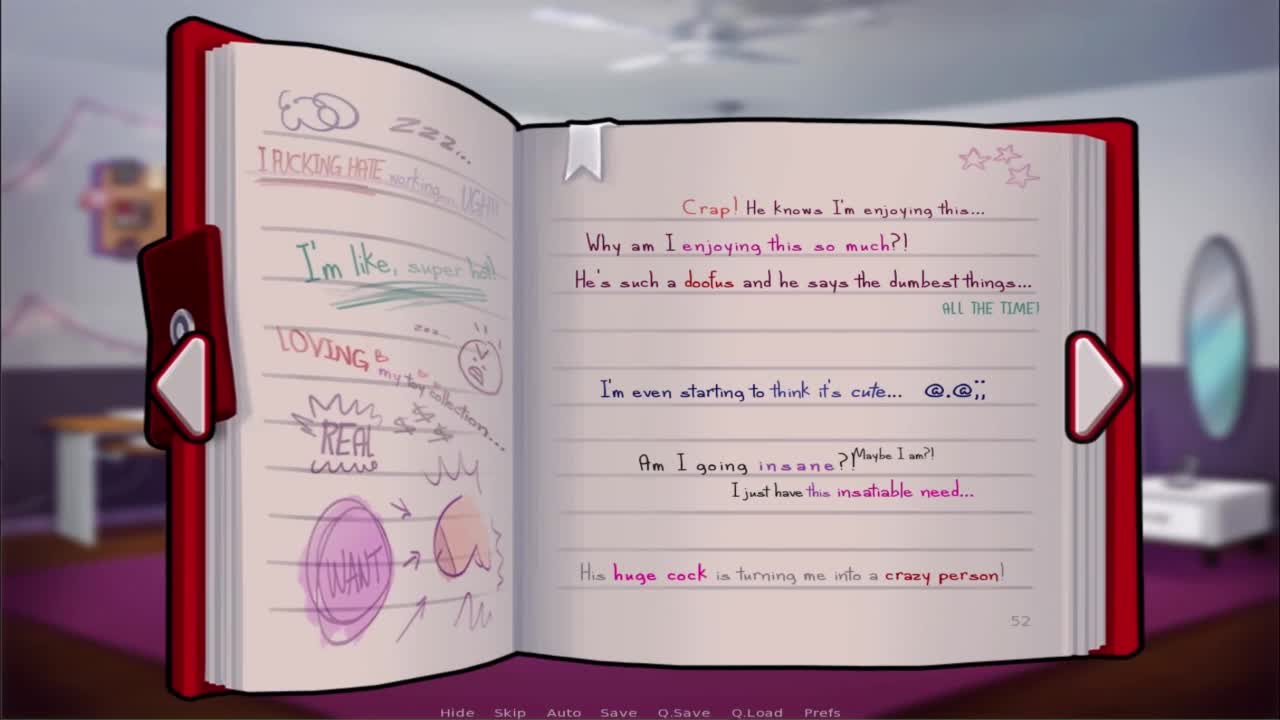 zzz...
I FUCKING HATE working... UGH!!
I'm like, super hot!
zzz...
LOVING my toy collection...
REAL
WANT
Crap! He knows I'm enjoying this...
Why am I enjoying this so much?!
He's such a doofus and he says the dumbest things...
ALL THE TIME!
I'm even starting to think it's cute... @.@;;
Am I going insane?! Maybe I am?!
I just have this insatiable need...
His huge cock is turning me into a crazy person!
52
Hide Skip Auto Save Q.Save Q.Load Prefs